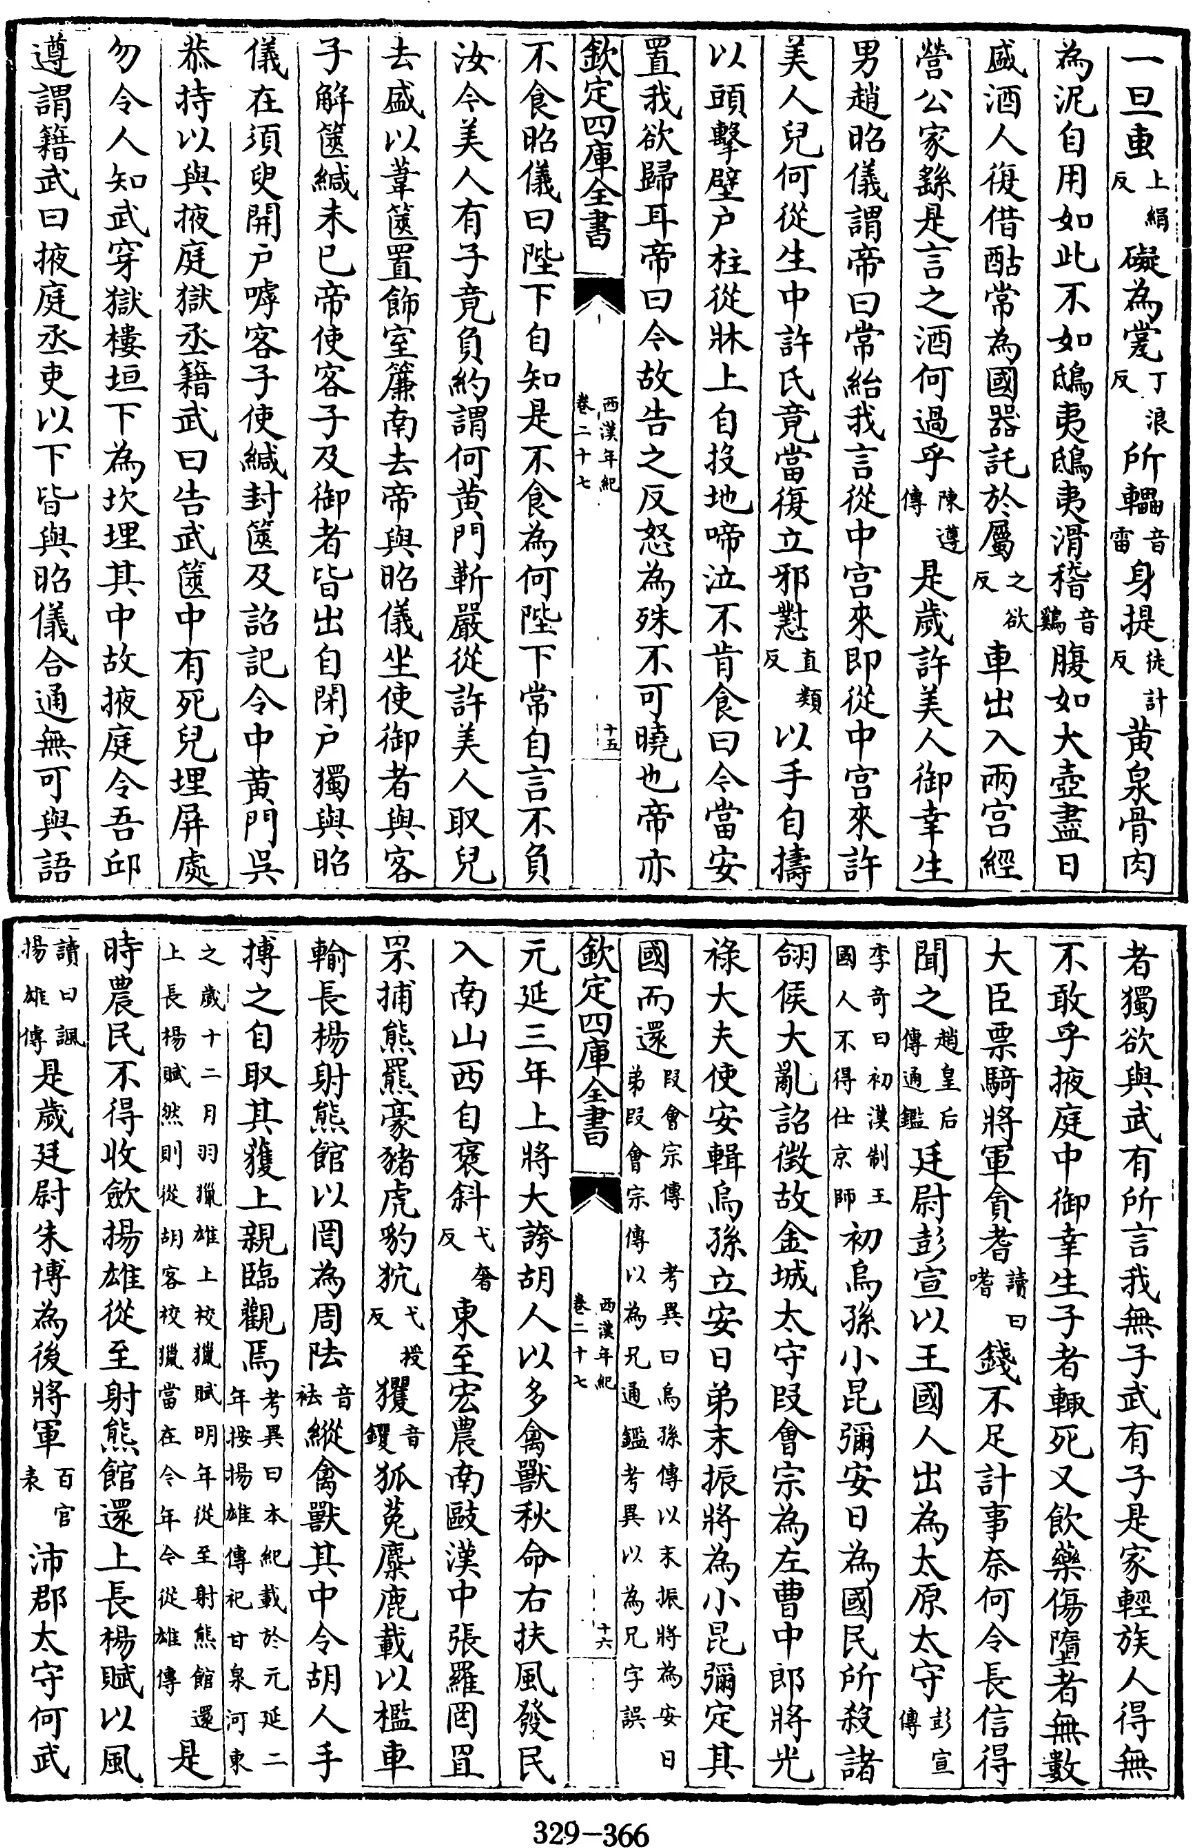 一旦叀上絹反礙為㼕丁浪反所轠音雷身提徒計反黃泉骨肉
為泥自用如此不如鴟夷鴟夷滑稽音鷄腹如大壺盡日
盛酒人復借酤常為國器託於屬之欲反車出入兩宮經
營公家繇是言之酒何過乎陳遵傳是歲許美人御幸生
男趙昭儀謂帝曰常紿我言從中宮來即從中宮來許
美人兒何從生中許氏竟當復立邪懟直類反以手自擣
以頭擊壁户柱從牀上自投地啼泣不肯食曰今當安
置我欲歸耳帝曰今故告之反怒為殊不可曉也帝亦
欽定四庫全書 西漢年紀卷二十七 十五
不食昭儀曰陛下自知是不食為何陛下常自言不負
汝今美人有子竟負約謂何黃門靳嚴從許美人取兒
去盛以葦篋置飾室簾南去帝與昭儀坐使御者與客
子解篋緘未已帝使客子及御者皆出自閉户獨與昭
儀在須臾開户嘑客子使緘封篋及詔記令中黃門吳
恭持以與掖庭獄丞籍武曰告武篋中有死兒埋屏處
勿令人知武穿獄樓垣下為坎埋其中故掖庭令吾邱
遵謂籍武曰掖庭丞吏以下皆與昭儀合通無可與語
者獨欲與武有所言我無子武有子是家輕族人得無
不敢乎掖庭中御幸生子者輒死又飲藥傷墮者無數
大臣票騎將軍貪耆讀曰嗜錢不足計事奈何令長信得
聞之趙皇后傳通鑑廷尉彭宣以王國人出為太原太守彭宣傳
李奇曰初漢制王國人不得仕京師初烏孫小昆彌安日為國民所殺諸
翖侯大亂詔徵故金城太守段會宗為左曹中郎將光
祿大夫使安輯烏孫立安日弟末振將為小昆彌定其
國而還段會宗傳 考異曰烏孫傳以末振將為安日弟段會宗傳以為兄通鑑考異以為兄字誤
欽定四庫全書 西漢年紀卷二十七 十六
元延三年上將大誇胡人以多禽獸秋命右扶風發民
入南山西自褒斜弋奢反東至宏農南毆漢中張羅罔罝
罘捕熊羆豪豬虎豹狖弋授反玃音钁狐菟麋鹿載以檻車
輸長楊射熊館以罔為周阹音祛縱禽獸其中令胡人手
搏之自取其獲上親臨觀焉考異曰本紀載於元延二年按揚雄傳祀甘泉河東
之歲十二月羽獵雄上校獵賦明年從至射熊館還上長楊賦然則從胡客校獵當在今年今從雄傳是
時農民不得收斂揚雄從至射熊館還上長楊賦以風
讀曰諷揚雄傳是歲廷尉朱博為後將軍百官表沛郡太守何武
329-366